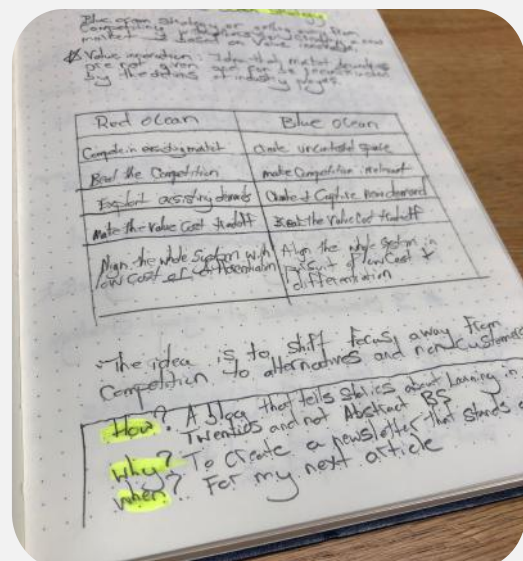 Blue ocean strategy
Competition
market
focus on Value
Value innovation: Idea that market
are not given and can be
by the actions of industry players.
Red Ocean Blue Ocean
Compete in existing market Create uncontested space
Beat the Competition make Competition irrelevant
Exploit existing demands Create & Capture new demand
Make the value cost tradeoff Break the value cost tradeoff
Align the whole System with Align the whole System in
low Cost or differentiation Pursuit of low Cost +
differentiation
The idea is to shift focus away from
Competition to alternatives and non customers
How? A blog that tells stories about in
Twenties and not Abstract BS
why? To Create a newsletter that stands
when? For my next article